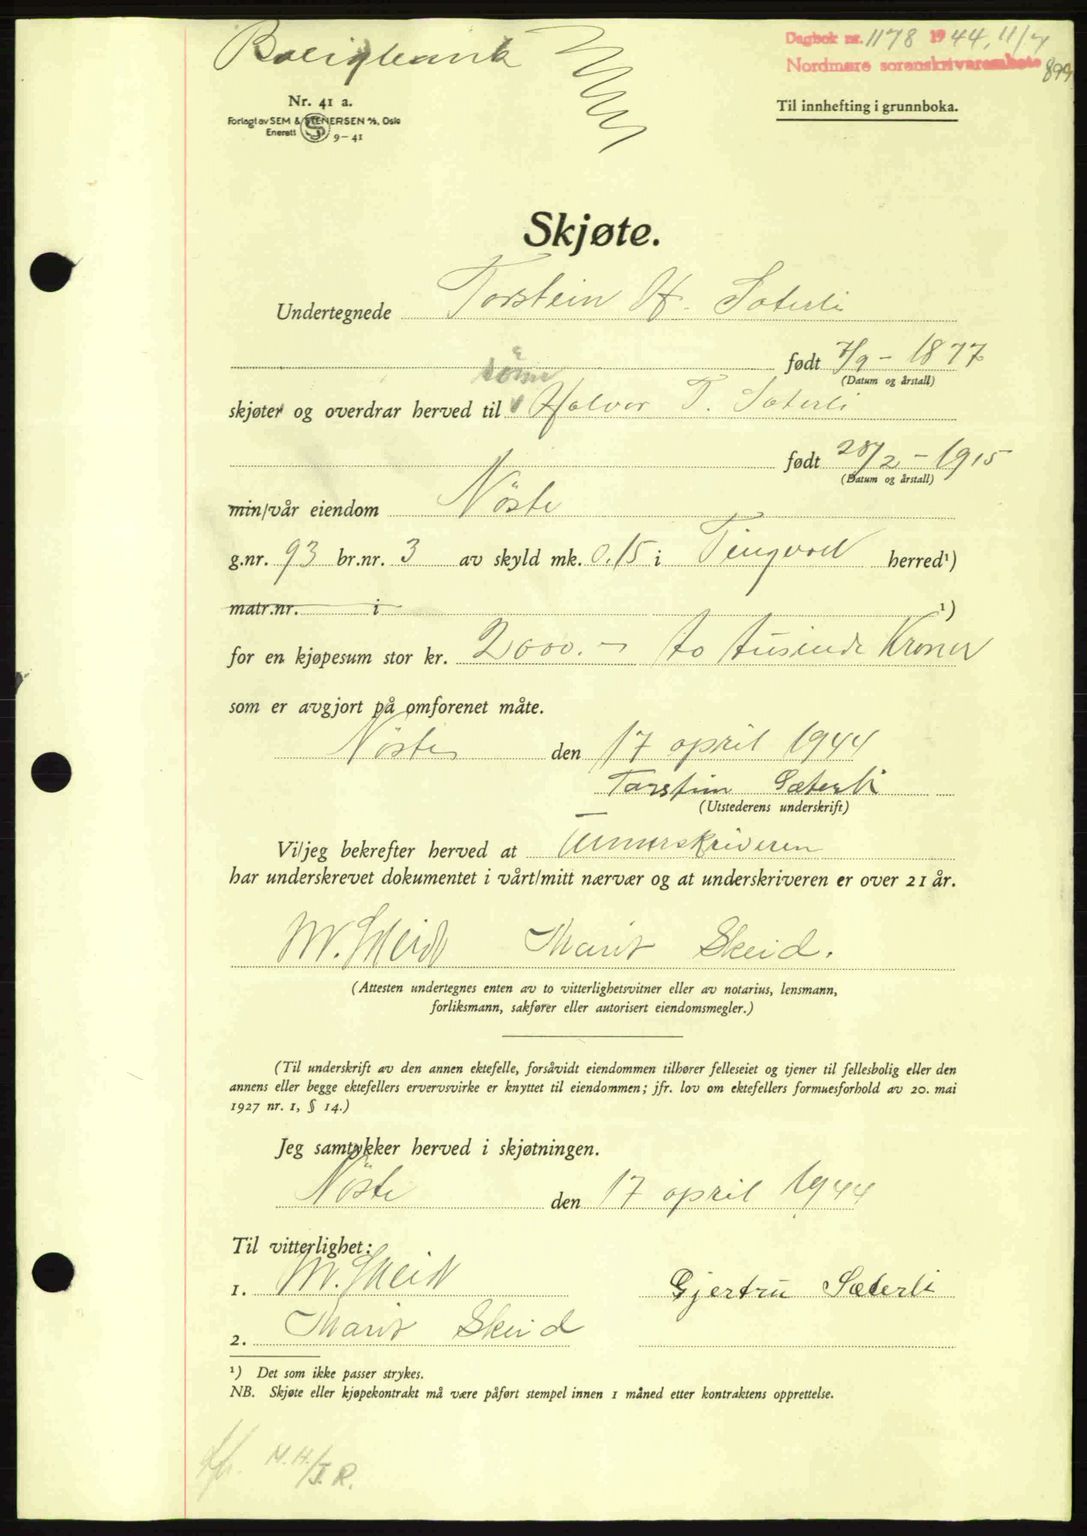 Boligbank
Dagbok nr. 1178 1944, 11/7
Nordmøre sorenskriverembete
899
Nr. 41 a.
Forlagt av SEM & STENERSEN A/S, Oslo
Enerett 9-41
Til innhefting i grunnboka.
Skjøte.
Undertegnede Torstein H. Sæterli
født 7/9 - 1877
(Datum og årstall)
sønn
skjøter og overdrar herved til Halvor T. Sæterli
født 28/2 - 1915
(Datum og årstall)
min/vår eiendom Nöste
g.nr. 93 br.nr. 3 av skyld mk. 0.15 i Tingvoll herred¹)
matr.nr. i ¹)
for en kjøpesum stor kr. 2000.- to tusinde Kroner
som er avgjort på omforenet måte.
Nöste den 17 april 1944
Torstein Sæterli
(Utstederens underskrift)
Vi/jeg bekrefter herved at Unnerskriveren
har underskrevet dokumentet i vårt/mitt nærvær og at underskriveren er over 21 år.
M. Skeid Marit Skeid.
(Attesten undertegnes enten av to vitterlighetsvitner eller av notarius, lensmann,
forliksmann, sakfører eller autorisert eiendomsmegler.)
(Til underskrift av den annen ektefelle, forsåvidt eiendommen tilhører felleseiet og tjener til fellesbolig eller den
annens eller begge ektefellers ervervsvirke er knyttet til eiendommen; jfr. lov om ektefellers formuesforhold av 20. mai
1927 nr. 1, § 14.)
Jeg samtykker herved i skjøtningen.
Nöste den 17 april 1944
Til vitterlighet:
1. M. Skeid Gjertru Sæterli
2. Marit Skeid
¹) Det som ikke passer strykes.
NB. Skjøte eller kjøpekontrakt må være påført stempel innen 1 måned etter kontraktens opprettelse.
M.H./J.R.